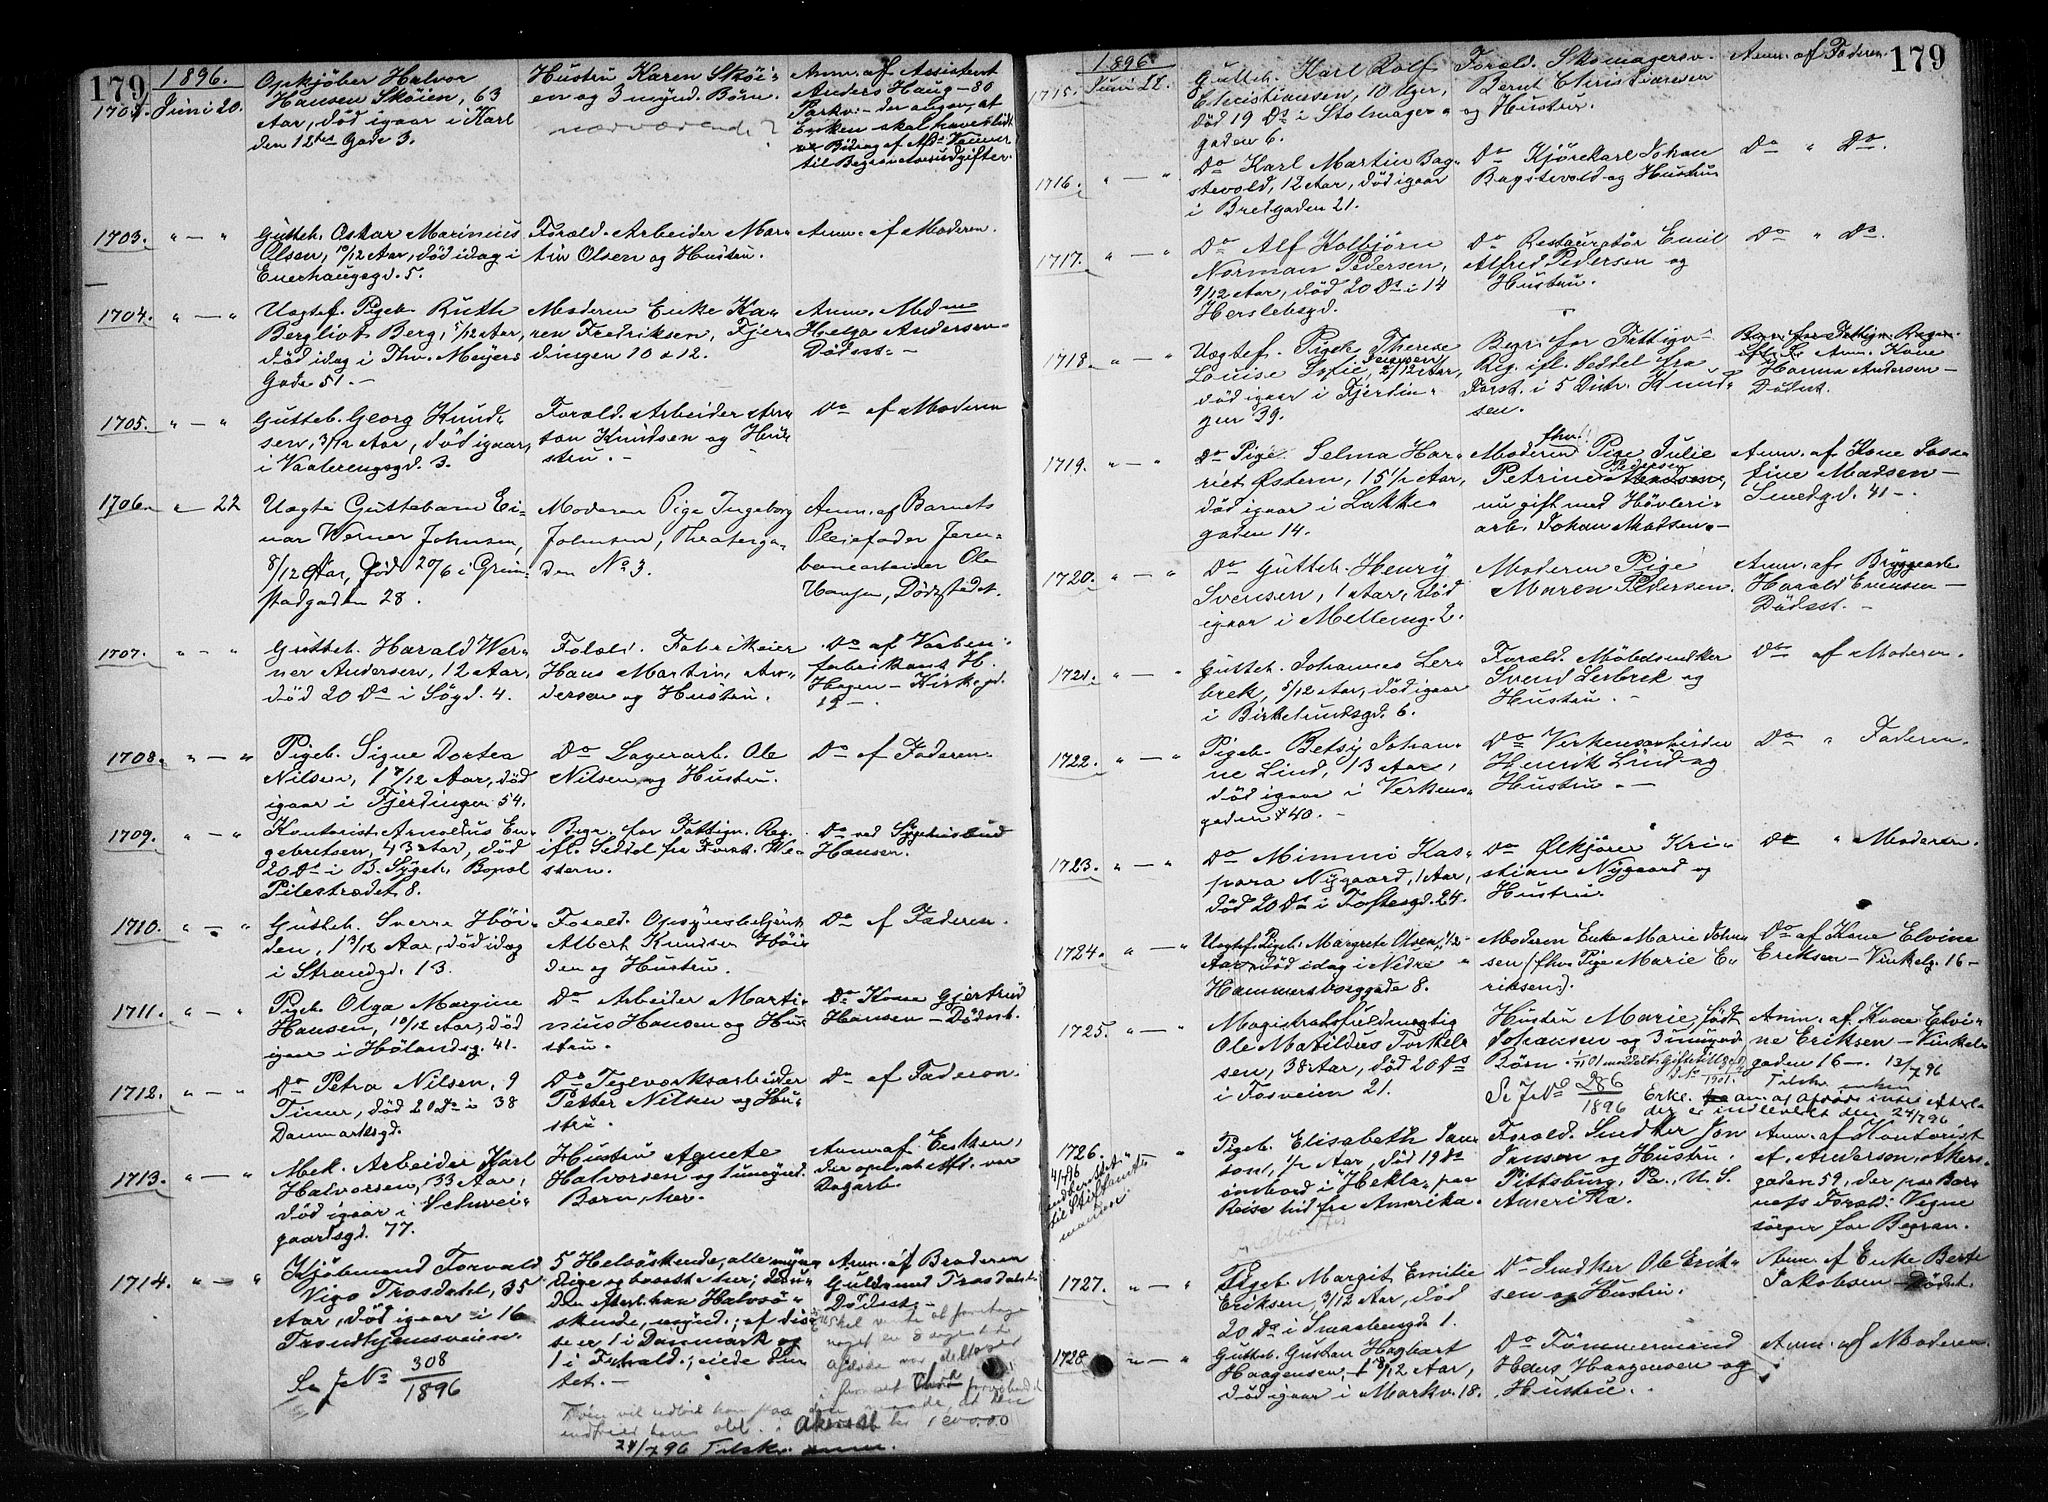 179
1896.
1702. Juni 20.
Opkjøber Halvor
Hansen Sköien, 63
Aar, död igaar i Karl
den 12tes Gade 3.
Hustru Karen Sköi-
en og 3 mynd. Børn.
nærværende?
Anm. af Assistent
Anders Haug - 80
Parkv. - der angav, at
Enken skal have
Bidrag af
til Begravelsesudgifter.
1703. " — "
Gutteb. Oskar Marinius
Olsen, 10/12 Aar, död idag i
Enerhaugsgd. 5.
Foræld. Arbeider Mar-
tin Olsen og Hustru.
Anm. af Moderen.
1704. " — "
Uægtef. Pigeb. Ruth
Bergliot Berg, 5/12 Aar,
död idag i Thv. Meyers
Gade 51. —
Moderen Enke Ka-
ren Fredriksen, Fjer-
dingen 10 & 12.
Anm. Mdm
Helga Andersen -
Dödsst. -
1705. " — "
Gutteb. Georg Knud-
sen, 3/12 Aar, död igaar,
i Vaalerengsgd. 3.
Foræld. Arbeider
Knudsen og Hu-
stru. -
Do af Moderen
1706. " 22
Uægte Guttebarn Ei-
nar Werner Johnsen,
8/12 Aar, død 20/6 i Grim-
stadgaden 28.
Moderen Pige Ingeborg
Johnsen, Theaterga-
den No 3.
Anm. af Barnets
Pleiefader Jern-
banearbeider Ole
Hansen, Dødsstedet.
1707. " — "
Gutteb. Harald Wer-
ner Andersen, 12 Aar,
död 20 Ds i Søgd. 4.
Foræld. Fabrikeier
Hans Martin An-
dersen og Hustru.
Do af
fabrikant H.
Hagen - Kirkegd.
19 -.
1708. " — "
Pigeb. Signe Dortea
Nilsen, 1 7/12 Aar, död
igaar i Fjerdingen 54.
Do Lagerarb. Ole
Nilsen og Hustru.
Do af Faderen.
1709. " — "
Kontorist Arnoldus En-
gebretsen, 43 Aar, död
20 Ds i B. Sygeh. Bopæl
Pilestrædet 8.
Begr. for Fattigv. Reg.
ifl. Seddel fra Forst. We-
stern.
Do ved Sygehusbud
Hansen.
1710. " — "
Gutteb. Sverre Høi-
den, 1 3/12 Aar, död idag
i Strandgd. 13.
Foræld. Opsynsbetjent
Albert Knudsen Høi-
den og Hustru.
Do af Faderen.
1711. " — "
Pigeb. Olga Margine
Hansen, 10/12 Aar, död
igaar i Hølandsg. 41.
Do Arbeider Marti-
nius Hansen og Hu-
stru.
Do Kone Gjertrud
Hansen - Dödsst.
1712. " — "
Do Petra Nilsen, 9
Timer, död 20 Ds i 38
Danmarksgd.
Do Teglverksarbeider
Petter Nilsen og Hu-
stru.
Do af Faderen.
1713. " — "
Mek. Arbeider Karl
Halvorsen, 33 Aar,
död igaar i Schwei-
gaardsgd. 77.
Hustru Agnete
Halvorsen og 1 umynd.
Barn, her.
Anm. af Enken,
der opn. at Afd. var
Dagarb.
1714. " — "
Kjöbmand Torvald
Vigo Trosdahl, 35
Aar, död igaar i 16
Trondhjemsveien.
Se J No 308/1896
5 Helsöskende, alle myn-
dige og bosatte her; desu-
den efterl. han Halvsö-
skende, mynd.; af dis-
se er 1 i Danmark og
1 i Fredrald.; eiede
tet. -
Anm. af Broderen
Guldsmed Trosdahl
Dödsst. -
24/7 96 Tilsk. anm.
179
1896.
1715. Juni 22.
Gutteb. Karl Rolf
Christiansen, 10 Uger,
död 19 Ds i Stolmager-
gaden 6.
Foræld. Skomagersv.
Bernt Christiansen
og Hustru.
Anm. af Faderen.
1716. " — "
Do Karl Martin Bag-
stevold, 12 Aar, död igaar
i Bredgaden 21.
Do Kjørekarl Johan
Bagstevold og Hustru
Do " Do.
1717. " — "
Do Alf Kolbjörn
Norman Pedersen,
9/12 Aar, död 20 Ds i 14
Herslebsgd.
Do Restauratör Emil
Alfred Pedersen og
Hustru.
Do " Do.
1718. " — "
Uægtef. Pigeb. Therese
Louise Sofie Jensen, 2/12 Aar,
död igaar i Fjerdin-
gen 39.
Begr. for Fattigv.
Reg. ifl. Seddel fra
Forst. i 5 Distr. Knud-
sen.
Anm. Kone
Hanna Andersen -
Dödsst.
1719. " — "
Do Pige Selma Har-
riet Østern, 15 1/2 Aar,
död igaar i Lakke-
gaden 14.
Moderen fhv. Pige Julie
Petrine Pedersen,
nu gift med Hövleri-
arb. Johan Madsen. -
Anm. af Kone Jose-
fine Madsen -
Smedgd. 41 -.
1720. " — "
Do Gutteb. Henry
Svensen, 1 Aar, död
igaar i Mellemg. 2.
Moderen Pige
Maren Pedersen.
Anm. af Bryggearb.
Harald Evensen -
Dödsst. -
1721. " — "
Gutteb. Johannes Ler-
brek, 5/12 Aar, död igaar
i Birkelundsgd. 6.
Foræld. Möbelsnedker
Svend Lerbrek og
Hustru. -
Do af Moderen.
1722. " — "
Pigeb. Betsy Johan-
ne Lind, 13 Aar,
död igaar i Verkens-
gaden 40. -
Do Verkensarbeider
Henrik Lind og
Hustru. -
Do " Faderen.
1723. " — "
Do Mimmi Kas-
para Nygaard, 1 Aar,
död 20 Ds i Toftesgd. 24.
Do Ølkjører Kri-
stian Nygaard og
Hustru.
Do " Moderen.
1724. " — "
Uægtef. Pigeb. Margrete Olsen, 1/2
Aar, död idag i Nedre
Hammersborggade 8.
Moderen Enke Marie John-
sen (fhv. Pige Marie E-
riksen).
Do af Kone Elvine
Eriksen - Vinkelg. 16 -
1725. " — "
Magistratsfuldmægtig
Ole Matildus Torkel-
sen, 38 Aar, död 20 Ds
i Fosveien 21.
Hustru Marie, født
Johansen og 3 umynd.
Børn.
Se J No 286/1896
Anm. af Kone Elvi-
ne Eriksen - Vinkel-
gaden 16 -. 13/7 96
Tilsk. enken
Erkl. an. af afdöde intet efterl.
der er indleveret den 24/7 96
1726. "
Pigeb. Elisabeth Jan-
son, 1/2 Aar, död 19 Ds
ombord i "Hekla" paa
Reise hid fra Amerika.
Foræld. Snedker Jon
Janson og Hustru.
Pittsburg, Pa., U. S.
Amerika.
Anm. af Kontorist
Anderson, Akers-
gaden 59, der paa Bar-
nets Foræld. Vegne
sörger for Begrav.
4/7 96
indberettet
til
1727. " — "
Pigeb. Margit Emilie
Eriksen, 3/12 Aar, död
20 Ds i Smaabergd. 1.
Do Snedker Ole Erik-
sen og Hustru.
Anm. af Enke Berte
Jakobsen - Dödsst.
1728 " — "
Gutteb. Gustav Hagbart
Haagensen, 1 8/12 Aar,
död igaar i Markv. 18.
Do Tömmermand
Hans Haagensen og
Hustru. -
Anm. af Moderen